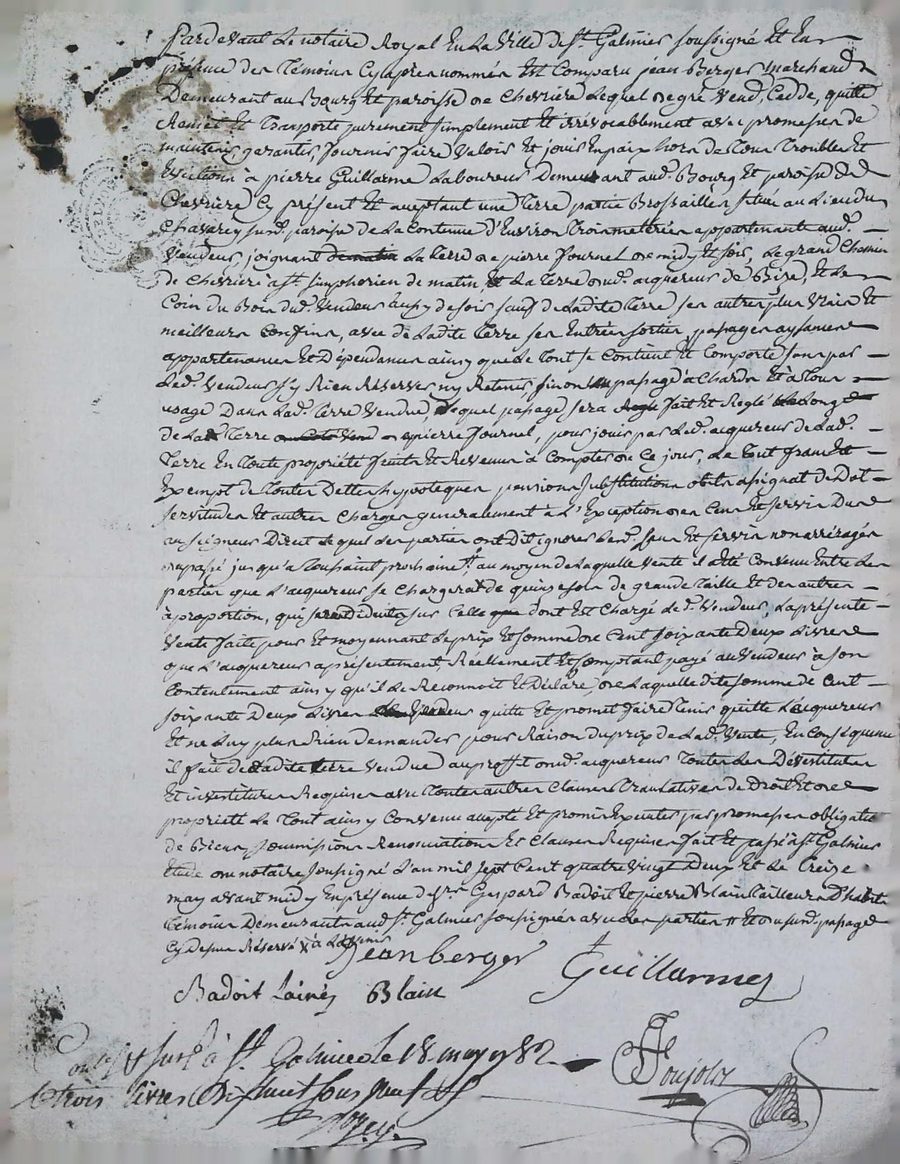 Pardevant Le notaire Royal En La Ville de St. Galmier soussigné Et En
présence des Témoins Cy après nommés Est Comparu jean Berger Marchand
Demeurant au Bourg Et paroisse de Chevriere Lequel de gré Vend, Cedde, quitte
Remet Et Transporte purement simplement Et irrévocablement avec promesse de
maintenir, garantir, fournir faire Valoir Et jouir En paix hors de Tous Troubles Et
Evictions à pierre Guillarme Laboureur Demeurant aud. Bourg Et paroisse de
Chevriere Cy présent Et aceptant une Terre partie Brossailles située au Lieu du
Chavarey surd. paroisse de La Contenue d'Environ Trois meterées appartenante aud.
Vendeur, joignant La Terre de pierre Fournel de midy Et soir, Le grand Chemin
de Chevriere à st. simphorien de matin Et La Terre dud. aquereur de Bize, Et Le
Coin du Bois dud. Vendeur aussy de soir sauf de Ladite Terre ses autres plus Vrais Et
meilleurs Confins, avec de Ladite Terre ses Entrées sorties, passages aysances
appartenances Et Dépendances ainsy que Le Tout se Contient Et Comporte sans par
Led. Vendeur s'y Rien Réserver ny Retenir, sinon un passage à Chards Et à Tous
usage Dans Lad. Terre Vendue, Lequel passage sera fait Et Reglé Long
de La Terre pierre Fournel, pour jouir par Led. aquereur de Lad.
Terre En Toute propriété fruits Et Revenus à Compter de Ce jour, Le Tout franc Et
Exempt de Toutes Dettes hypoteques pensions substitutions obits assignat de Dot
servitudes Et autres Charges generalement à L'Exception des Cens Et servis Dus
au seigneur Direct Lequel des parties ont Dit ignorer Lesd. Cens Et servis non arréragés
du passé jusqu'à Toussaint prochaine, au moyen de Laquelle Vente il a été Convenu Entre Les
parties que L'aquereur se Chargera de quinze sols de grande Taille Et des autres
à proportion, qui seront sur Celle dont Est Chargé Le d. Vendeur, La présente
Vente faite pour Et moyennant Le prix Et somme de Cent soixante Deux Livres
que L'aquereur a présentement, Réellement Et Comptant payé au Vendeur à son
Contentement ainsy qu'il Le Reconnoit Et Déclare, de Laquelle dite somme de Cent
soixante Deux Livres Le Vendeur quitte Et promet faire Tenir quitte L'aquereur
Et ne Luy plus Rien demander pour Raison du prix de Lad. Vente, En Conséquence
il fait de Ladite Terre Vendue au profit dud. aquereur Toutes Les Dévestitures
Et investitures Requises avec Toutes autres Clauses Translatives de Droit Et de
propriété Le Tout ainsy Convenu accepté Et promis Executer par promesse obligation
de Biens soumissions Renonciations Et Clauses Requises fait Et passé à St. Galmier
Etude du notaire soussigné L'an mil sept Cent quatre Vingt Deux Et Le Treize
may avant midy En présence de sr. Gaspard Badoit Et pierre Blain Tailleur D'habits
Témoins Demeurants aud. St. Galmier soussignés avec Les parties
Cy dessus Réservé
Jean berger
Guillarmez
Badoit Lainé Blain
à St. Galmier le 18. may 1782.
trois livres Dix huit sous neuf